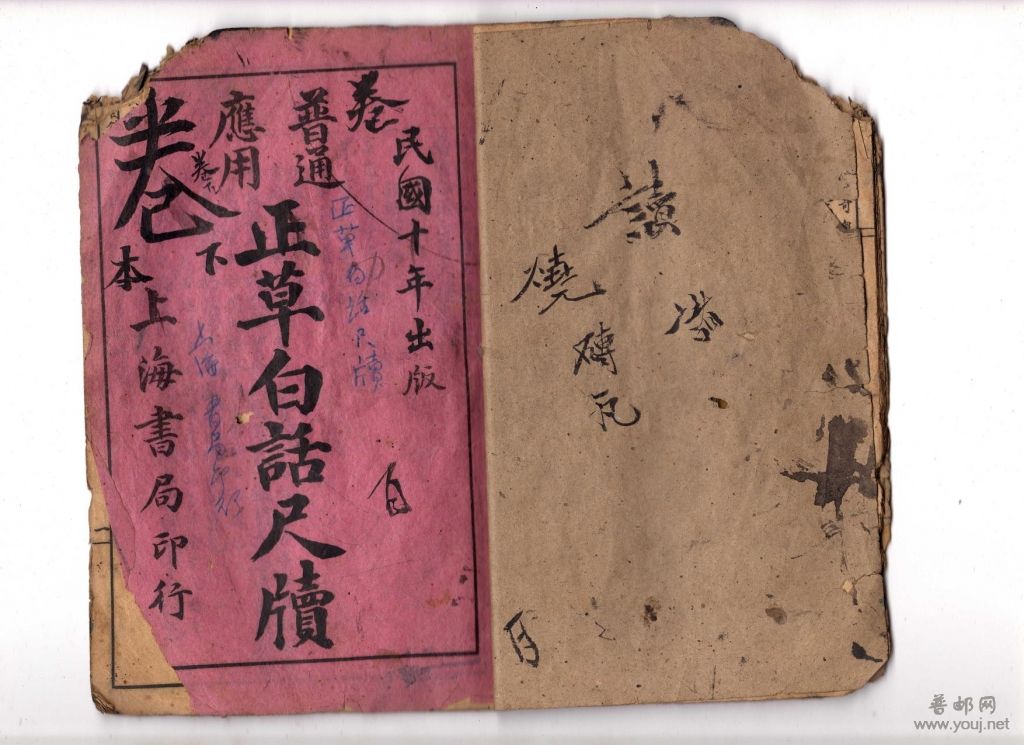 民國十年出版
普通
應用
正草白話尺牘
卷下
卷
本
上海書局印行
卷
正草白话尺牘
上海書局印行
燒磚瓦
普邮网
www.youj.net